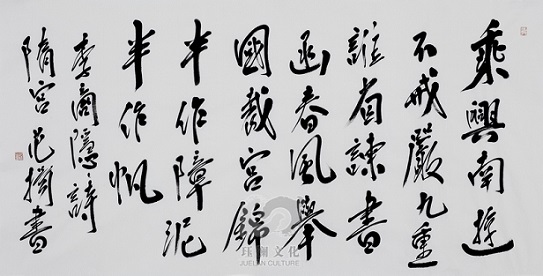 乘興南遊
不戒嚴九重
誰省諫書
函春風舉
國裁宮錦
半作障泥
半作帆
李商隱詩
隋宮 書
文化
JUELAN CULTURE